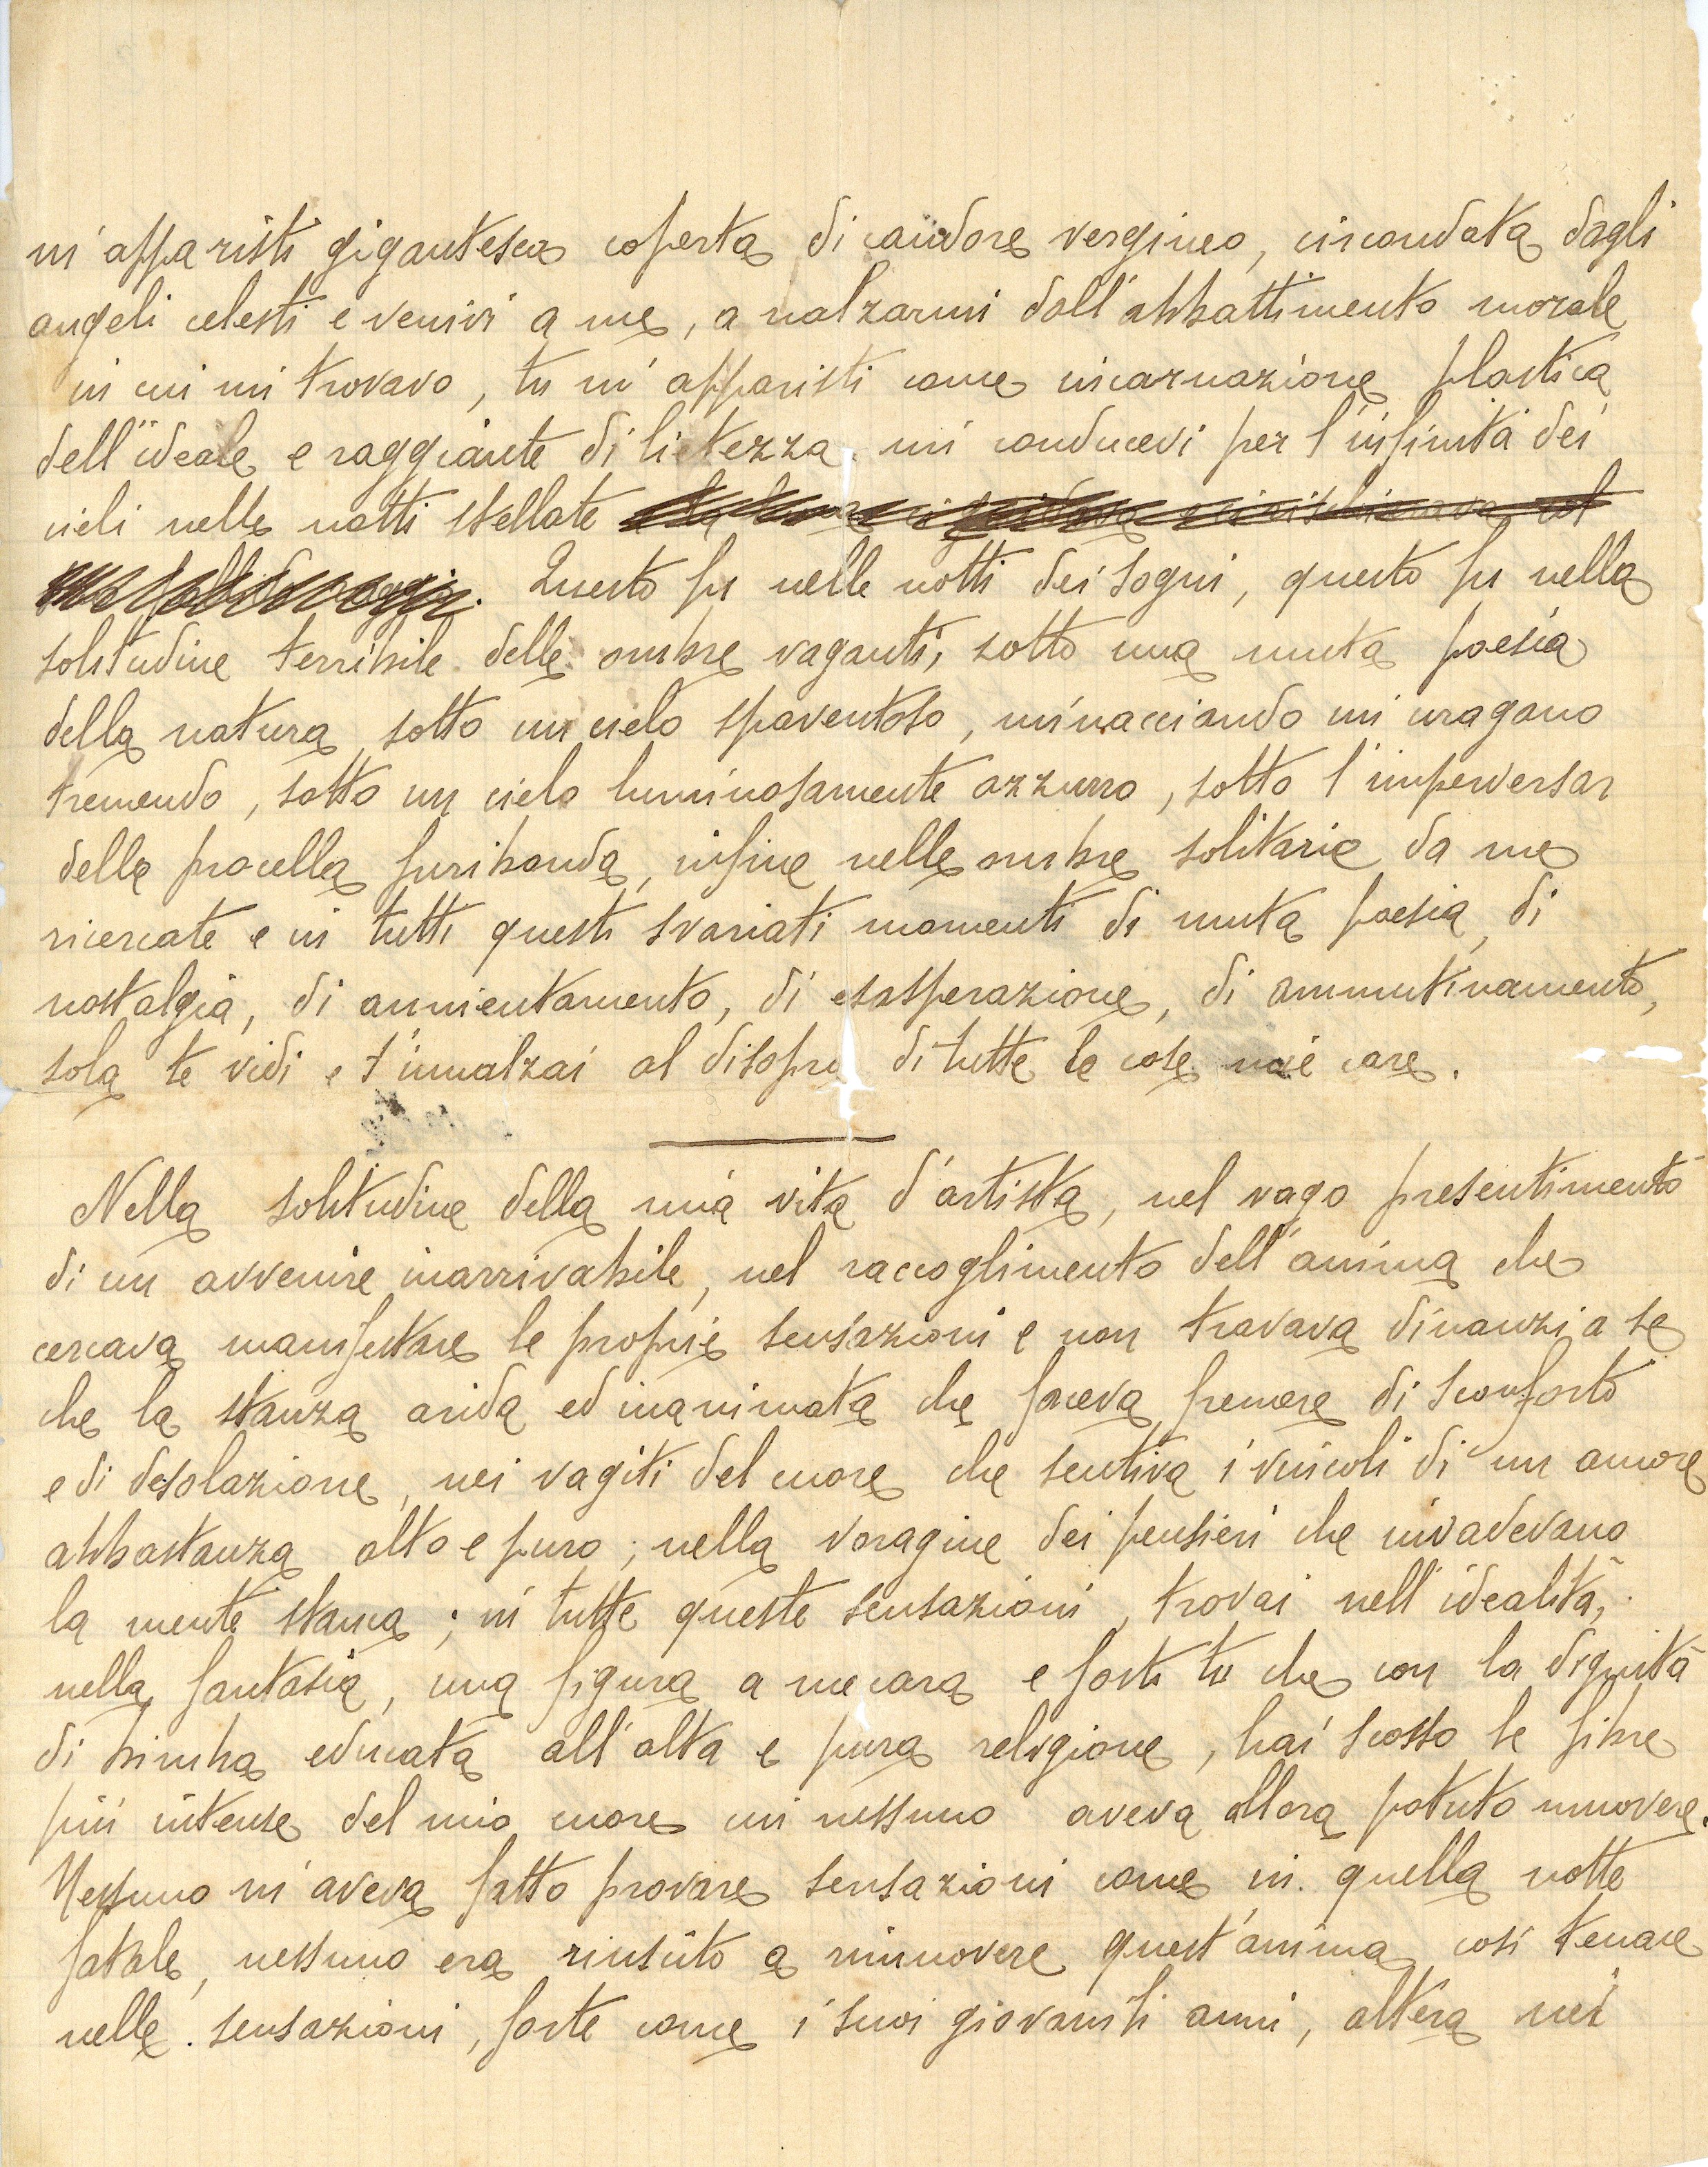 m'apparisti gigantesca coperta di candore vergineo, circondata dagli
angeli celesti e venivi a me, a rialzarmi dall'abbattimento morale
in cui mi trovavo, tu m'apparisti come incarnazione plastica
dell'ideale e raggiante di lietezza mi conducevi per l'infinità dei
cieli nelle notti stellate
Questo fu nelle notti dei sogni, questo fu nella
solitudine terribile delle ombre vaganti, sotto una muta poesia
della natura, sotto un cielo spaventoso, minacciando un uragano
tremendo, sotto un cielo luminosamente azzurro, sotto l'imperversar
della procella furibonda, infine nelle ombre solitarie da me
ricercate e in tutti questi svariati momenti di muta poesia, di
nostalgia, di annientamento, di esasperazione, di ammutinamento,
sola te vidi e t'innalzai al disopra di tutte le cose mie care.
Nella solitudine della mia vita d'artista, nel vago presentimento
di un avvenire inarrivabile, nel raccoglimento dell'anima che
cercava manifestare le proprie sensazioni e non trovava dinanzi a se
che la stanza arida ed inanimata che faceva fremere di sconforto
e di desolazione, nei vagiti del cuore che sentiva i vincoli di un amore
abbastanza alto e puro; nella voragine dei pensieri che invadevano
la mente stanca; in tutte queste sensazioni, trovai nell'idealità,
nella fantasia, una figura a me cara e fosti tu che con la dignità
di bimba educata all'alta e pura religione, hai scosso le fibre
più intense del mio cuore cui nessuno aveva allora potuto muovere.
Nessuno m'aveva fatto provare sensazioni come in quella notte
fatale, nessuno era riuscito a rimuovere quest'anima così tenace
nelle sensazioni, forte come i suoi giovanili anni, altera nei